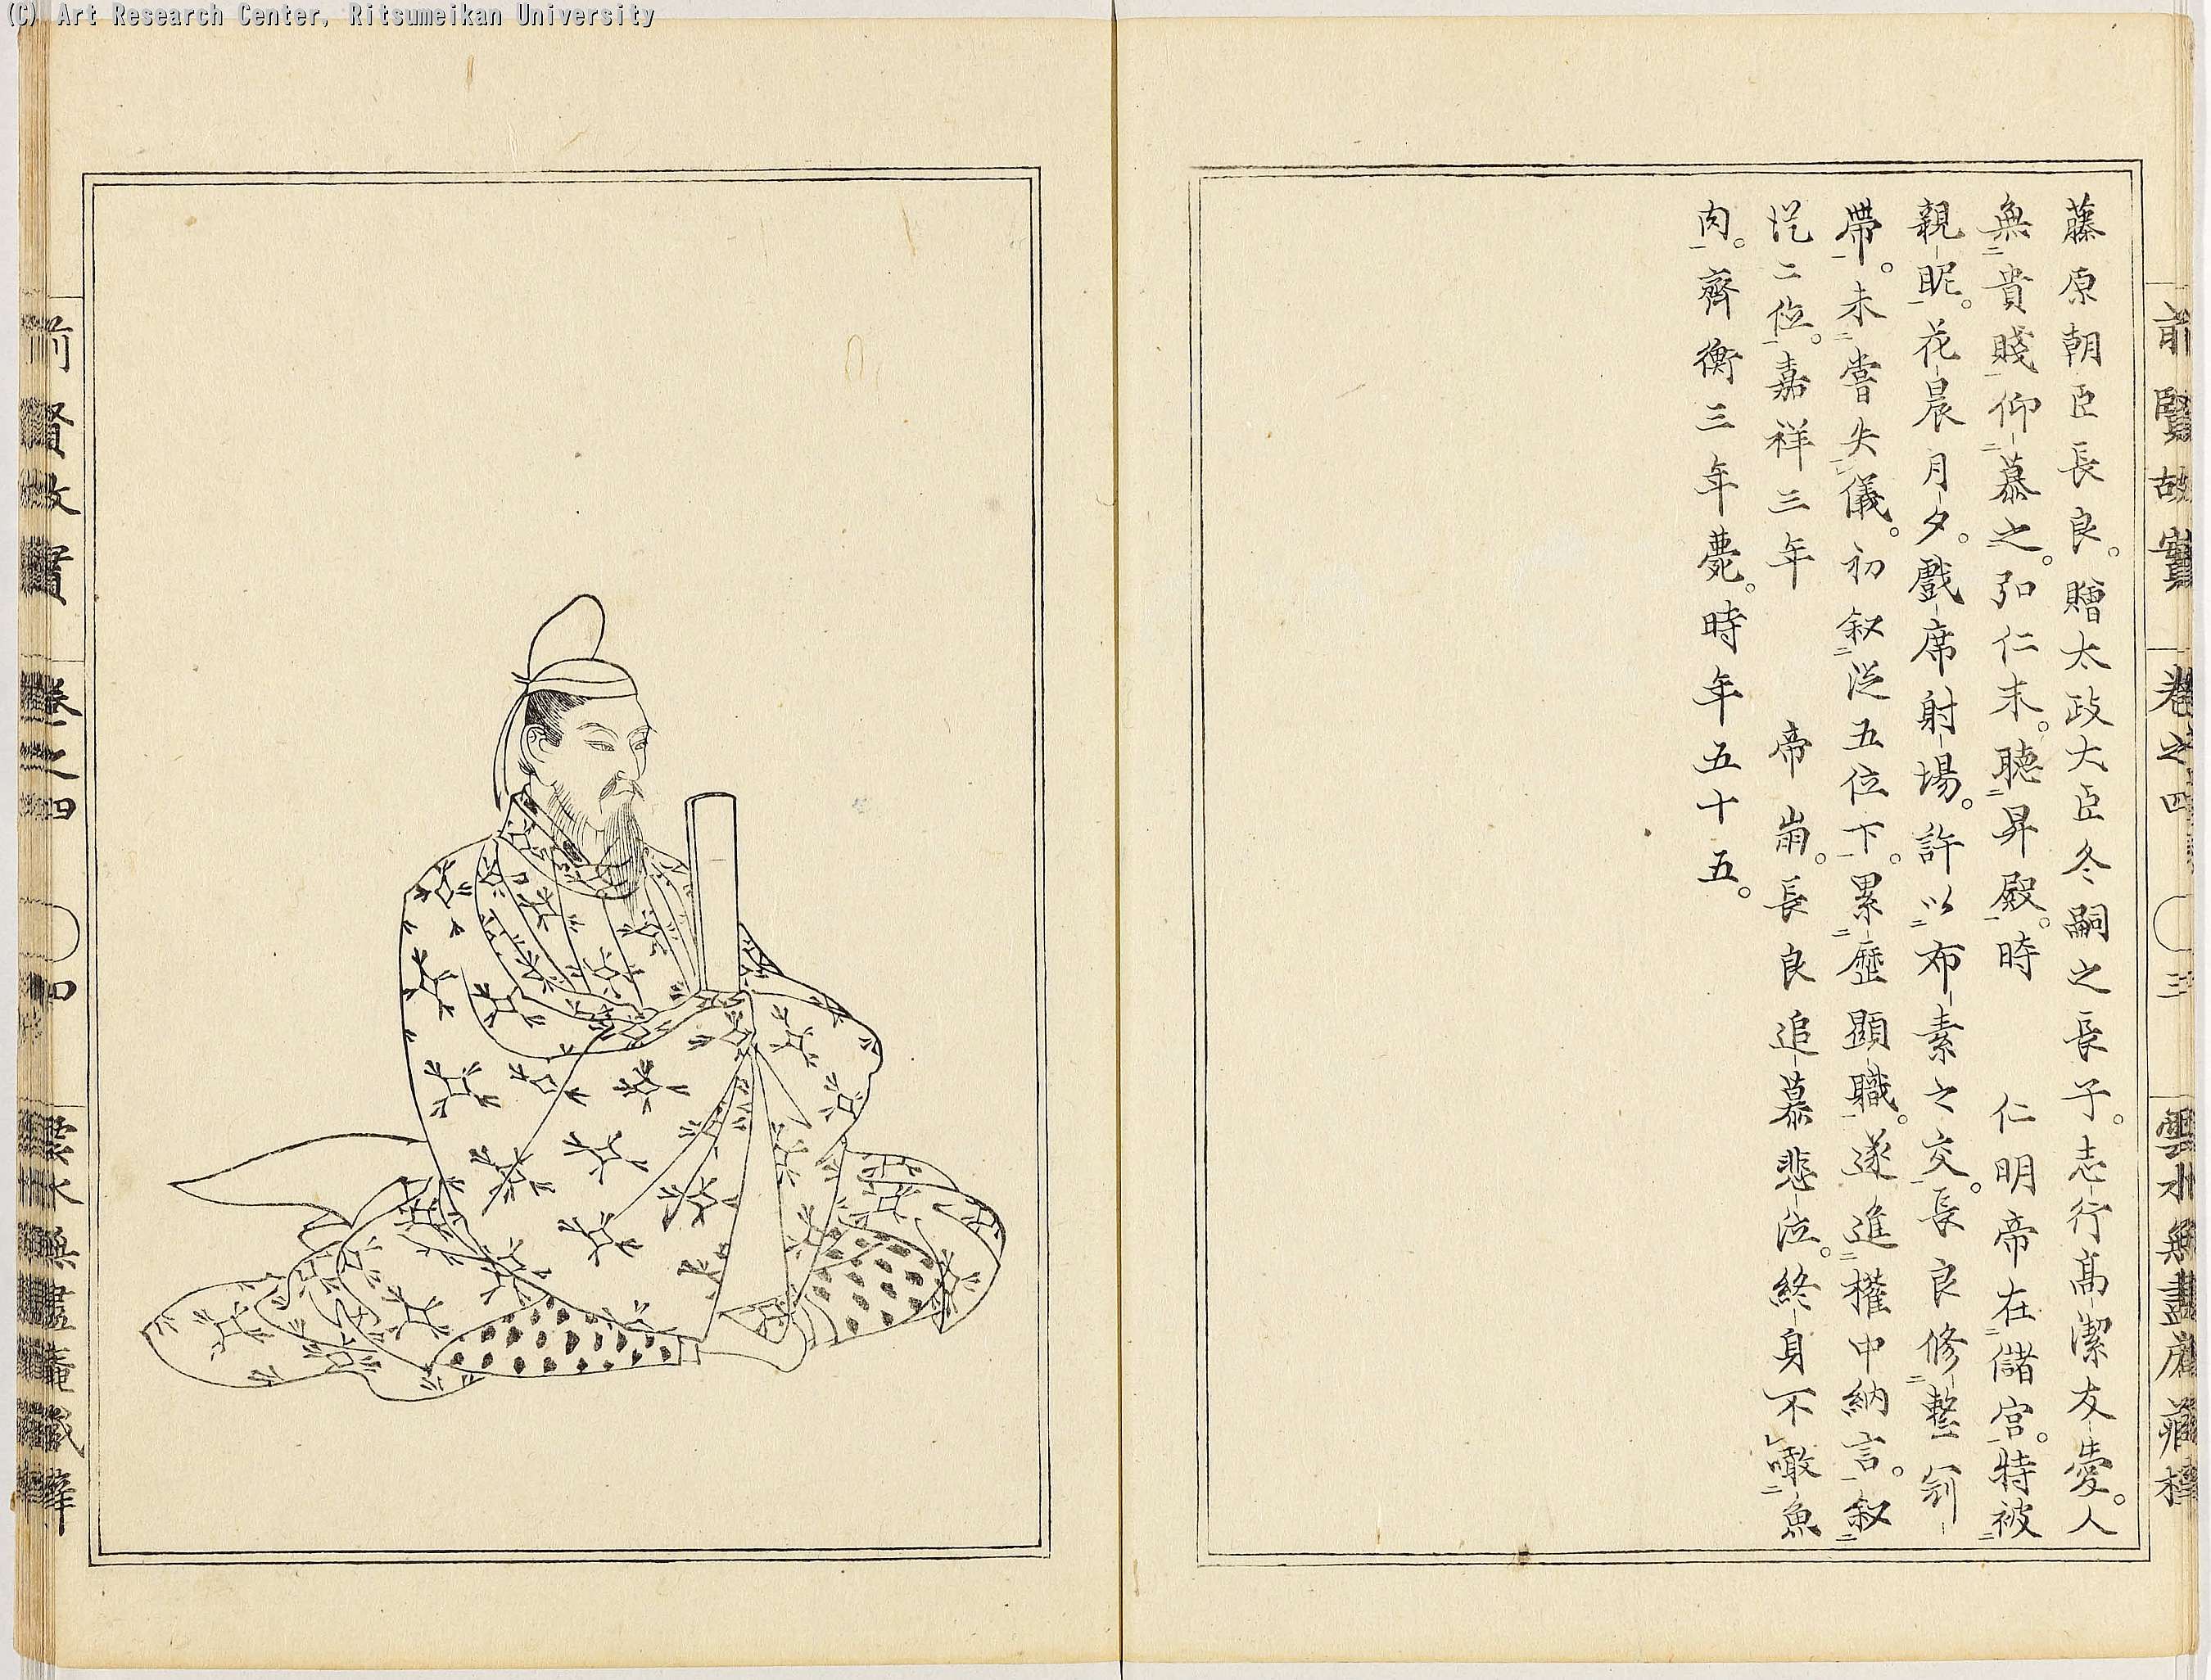 (C) Art Research Center, Ritsumeikan University
前賢故實
卷之四
三
雲水無盡庵藏梓
藤原朝臣長良。贈太政大臣冬嗣之長子。志行高潔友愛。人
無貴賤仰慕之。弘仁末。聽昇殿。時 仁明帝在儲宮。特被
親昵。花晨月夕。戲席射場。許以布素之交。長良修整剣
帶。未嘗失儀。初叙従五位下。累歷顯職。遂進權中納言。叙
従二位。嘉祥三年 帝崩。長良追慕悲泣。終身不噉魚
肉。齊衡三年薨。時年五十五。
前賢故實
卷之四
四
雲水無盡庵藏梓